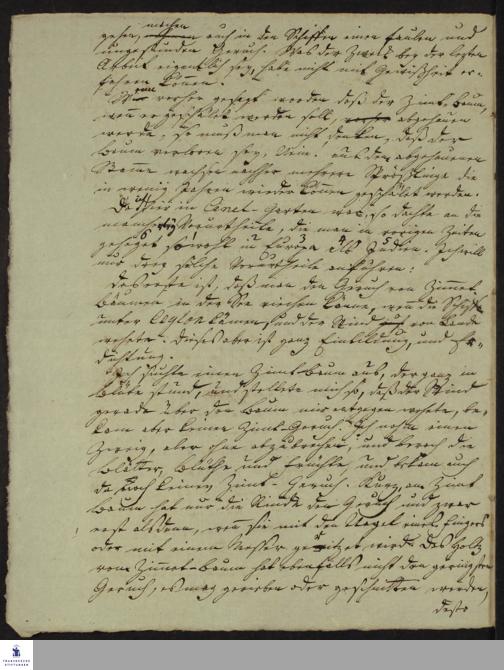 gehen, machen auch in den Schiffen einen faulen und
ungesunden Geruch. Was der Zweck bey der letzten
Arbeit eigentlich sey, habe nicht mit Gewißheit er-
fahren können.
Wenn vorher gesagt worden daß der Zimt-Baum,
wenn er geschälet werden soll, abgehauen
werde, so muß man nicht denken, daß der
Baum verloren sey, Nein. aus dem abgehauenen
Stamme wachsen nachher mehrere Sprößlinge die
in wenig Jahren wieder können geschälet werden.
Da ich hier im Canel-Garten war, so dachte an die
mancherley Vorurtheile, die man in vorigen Zeiten
geheget sowohl in Europa als Indien. Ich will
nur drey solche Vorurtheile anführen:
Das erste ist, daß man den Geruch von Zimmet-
Bäumen in der See riechen könne, wenn die Schiffe
unter Ceylon kämen, und der Wind von Lande
wehete. Dieses aber ist ganz Einbildung, und Er-
dichtung.
Ich suchte einen Zimt-Baum aus, der ganz in
Blüte stund, und stellete mich so, daß der Wind
gerade über den Baum mir entgegen wehete, be-
kam aber keinen Zimt-Geruch. Ich nahm einen
Zweig, aber ohne abzubrechen, und beroch die
Blätter, Blüthe und Früchte und bekam auch
da noch keinen Zimt-Geruch. Kurz, am Zimt
Baum hat nur die Rinde den Geruch und zwar
erst alsdenn, wenn sie mit den Nagel eines Fingers
oder mit einem Messer geritzet wird. Das Holz
vom Zimmet-Baum hat ebenfalls nicht den geringsten
Geruch, es mag gerieben oder geschnitten werden,
desto
FRANCKESCHE
STIFTUNGEN